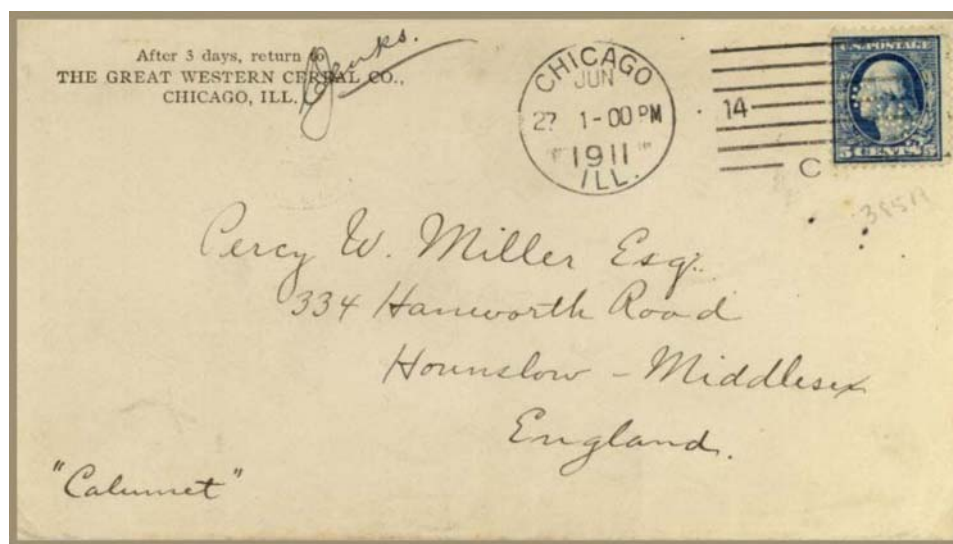 After 3 days, return to
THE GREAT WESTERN CEREAL CO.,
CHICAGO, ILL.
CHICAGO
JUN
27 1-00 PM
1911
ILL.
14
C
U.S. POSTAGE
5 CENTS 5
Percy W. Miller Esq.
334 Hanworth Road
Hounslow - Middlesex
England.
"Calumet"